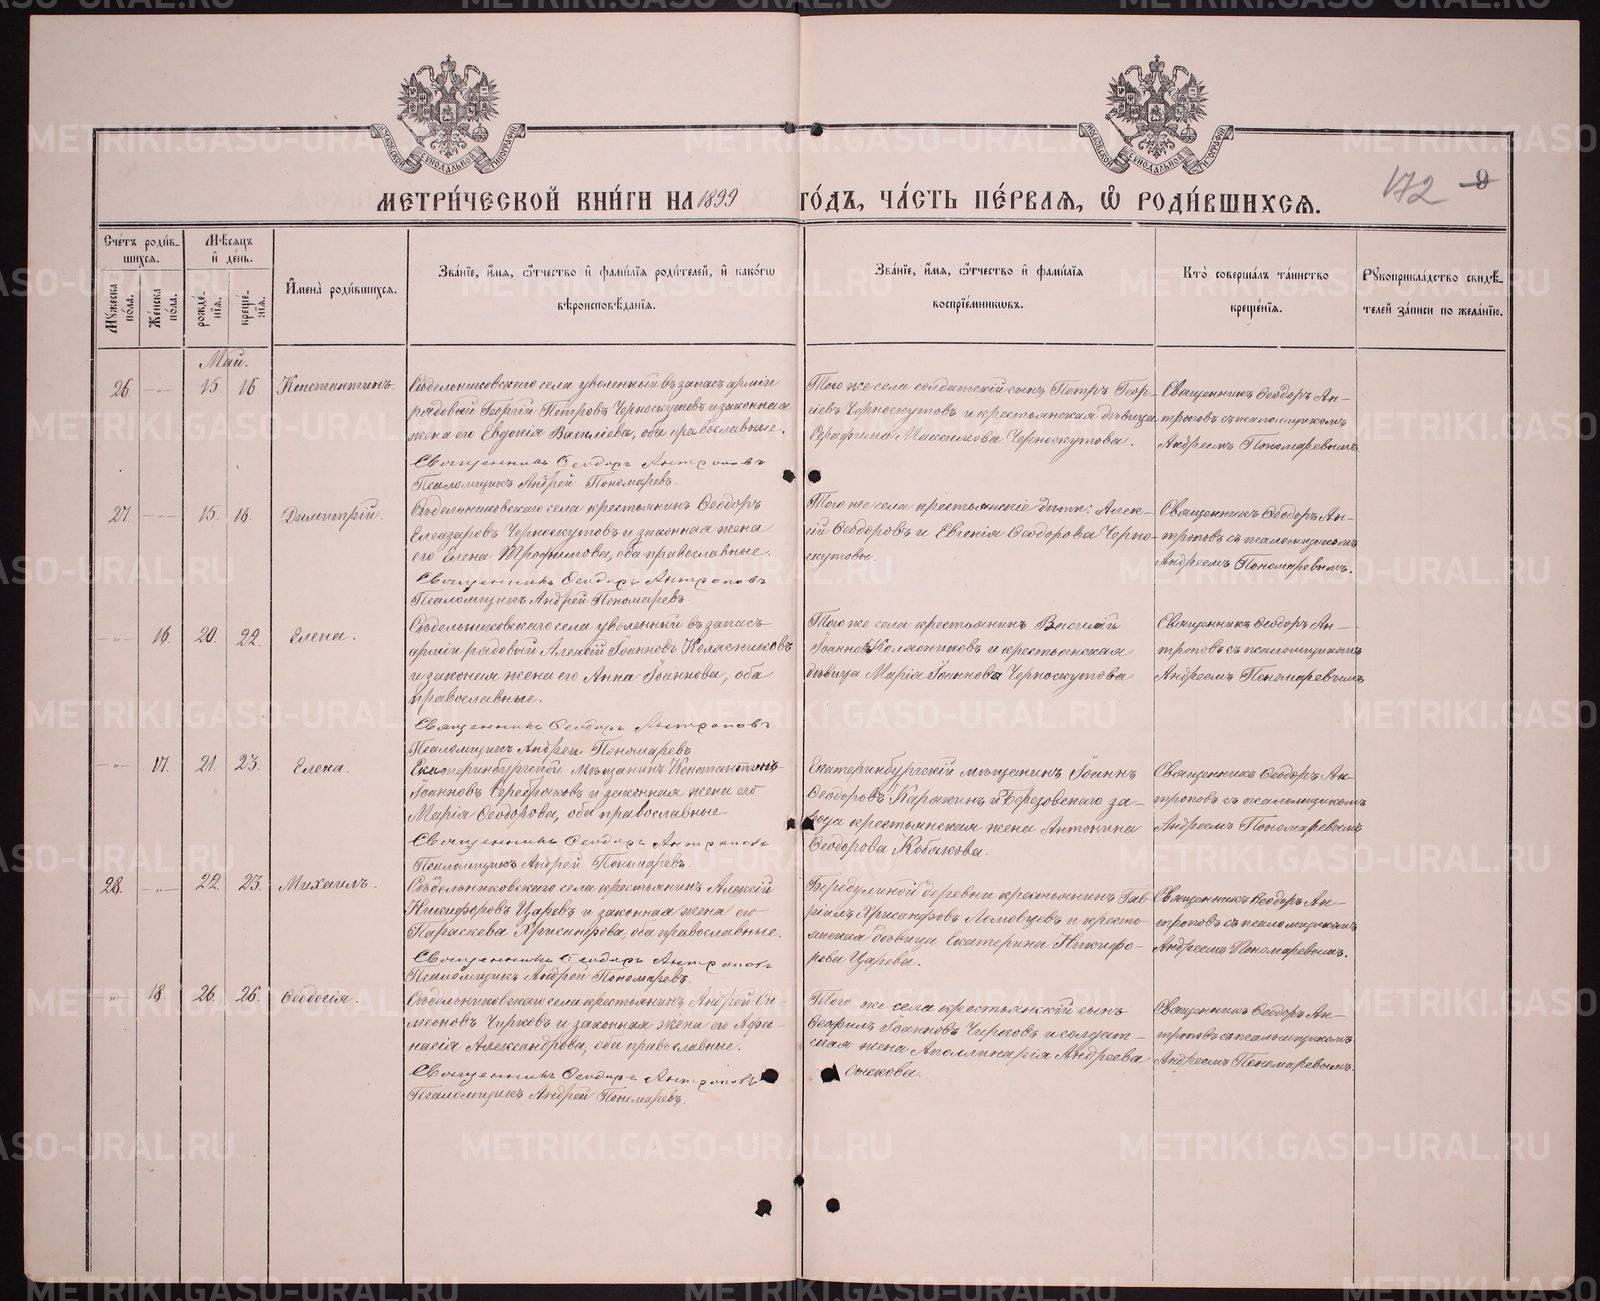 МОСКОВСКОЙ СѴНОДАЛЬНОЙ ТИПОГРАФІИ
МОСКОВСКОЙ СѴНОДАЛЬНОЙ ТИПОГРАФІИ
МЕТРИ́ЧЕСКОЙ КНИ́ГИ НА 1899 ГО́ДЪ, ЧА́СТЬ ПЕ́РВАѦ, Ѡ҆ РОДИ́ВШИХСѦ.
172
Сче́тъ роди́в-
шихсѧ.
Мꙋжеска по́ла.
Же́нска по́ла.
Мѣ́сѧцъ
и҆ де́нь.
рожде́-
нїѧ.
креще́-
нїѧ.
И҆мена̀ роди́вшихсѧ.
Зва́нїе, и҆́мѧ, ѻ҆́тчество и҆ фами́лїѧ роди́телей, и҆ како́гѡ
вѣроисповѣ́данїѧ.
Зва́нїе, и҆́мѧ, ѻ҆́тчество и҆ фами́лїѧ
воспрїе́мникѡвъ.
Кто̀ соверша́лъ та́инство
креще́нїѧ.
Рꙋкоприкла́дство свидѣ́-
телей за́писи по жела́нїю.
Май.
26 — 15 16 Константинъ.
Сѣдельниковскаго села уволенный въ запасъ арміи
рядовый Георгій Петровъ Черноскутовъ и законная
жена его Евдокія Василіева, оба православные.
Священникъ Ѳеодоръ Антроповъ
Псаломщикъ Андрей Пономаревъ.
Того же села солдатскій сынъ Петръ Геор-
гіевъ Черноскутовъ и крестьянская дѣвица
Серафима Максимова Черноскутова.
Священникъ Ѳеодоръ Ан-
троповъ съ псаломщикомъ
Андреемъ Пономаревымъ.
27 — 15. 16. Димитрій.
Сѣдельниковскаго села крестьянинъ Ѳеодоръ
Елеазаровъ Черноскутовъ и законная жена
его Елена Трофимова, оба православные.
Священникъ Ѳеодоръ Антроповъ
Псаломщикъ Андрей Пономаревъ
Того же села крестьянскіе дѣти: Алек-
сій Ѳеодоровъ и Евгенія Ѳеодорова Черно-
скутовы.
Священникъ Ѳеодоръ Ан-
троповъ съ псаломщикомъ
Андреемъ Пономаревымъ.
— " — 16 20. 22. Елена.
Сѣдельниковскаго села уволенный въ запасъ
арміи рядовый Алексій Іоанновъ Колясниковъ
и законная жена его Анна Іоаннова, оба
православные.
Священникъ Ѳеодоръ Антроповъ
Псаломщикъ Андрей Пономаревъ
Того же села крестьянинъ Василій
Іоанновъ Колясниковъ и крестьянская
дѣвица Марія Іоаннова Черноскутова
Священникъ Ѳеодоръ Ан-
троповъ съ псаломщикомъ
Андреемъ Пономаревымъ
— " — 17. 21. 23. Елена.
Екатеринбургской мѣщанинъ Константинъ
Іоанновъ Серебряковъ и законная жена его
Марія Ѳеодорова, оба православные.
Священникъ Ѳеодоръ Антроповъ
Псаломщикъ Андрей Пономаревъ.
Екатеринбургскій мѣщанинъ Іоаннъ
Ѳеодоровъ Каракинъ и Березовскаго за-
вода крестьянская жена Антонина
Ѳеодорова Кобякова.
Священникъ Ѳеодоръ Ан-
троповъ съ псаломщикомъ
Андреемъ Пономаревымъ
28. — " — 22. 23. Михаилъ.
Сѣдельниковскаго села крестьянинъ Алексій
Никифоровъ Царевъ и законная жена его
Параскева Хрисанфова, оба православные.
Священникъ Ѳеодоръ Антроповъ
Псаломщикъ Андрей Пономаревъ.
деревни крестьянинъ Гав-
ріилъ Хрисанфовъ и кресть-
янская дѣвица Екатерина Никифо-
рова Царева.
Священникъ Ѳеодоръ Ан-
троповъ съ псаломщикомъ
Андреемъ Пономаревымъ.
— " — 18. 26. 26. Ѳеодосія.
Сѣдельниковскаго села крестьянинъ Андрей Си-
меоновъ Чирковъ и законная жена его Аѳа-
насія Александрова, оба православные.
Священникъ Ѳеодоръ Антроповъ
Псаломщикъ Андрей Пономаревъ.
Того же села крестьянскій сынъ
Ѳеофилъ Іоанновъ Чирковъ и солдат-
ская жена Аполлинарія Андреева
Священникъ Ѳеодоръ Ан-
троповъ съ псаломщикомъ
Андреемъ Пономаревымъ.
METRIKI.GASO-URAL.RU